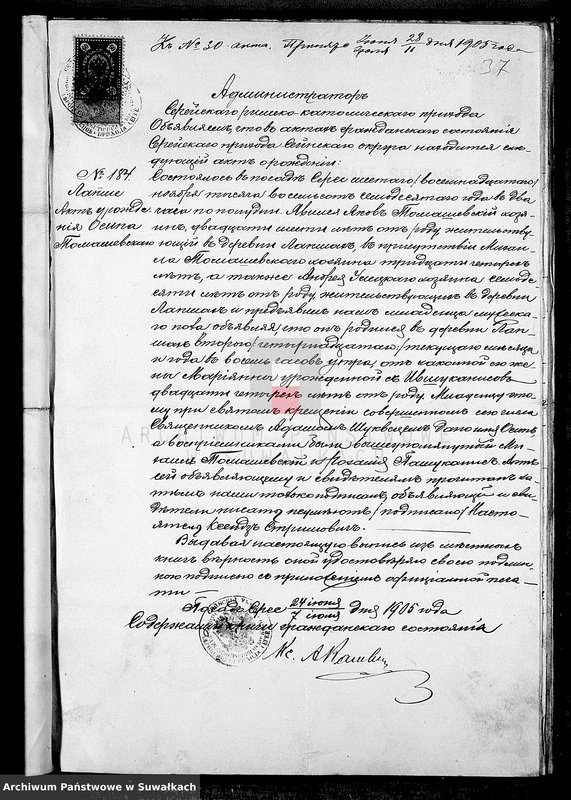 Къ № 30 акта. Принято Іюня 28/11 дня 1905 года
Іюля
37
Администраторъ
Серейскаго римско-католическаго прихода
Объявляетъ, что въ актахъ гражданскаго состоянія
Серейскаго прихода Сейнскаго округа находится слѣ-
дующій актъ о рожденіи:
№ 184.
Состоялось въ посадѣ Сереѣ шестаго/восемнадцатаго/
ноября тысяча восемьсотъ семьдесятаго года въ два
Актъ рожде-
часа по полудни. Явился Яковъ Томашевскій хозя-
нія Осипа
инъ, двадцати шести лѣтъ отъ роду, жительству-
Томашевскаго
ющій въ деревни въ присутствіи Миха-
ла Томашевскаго хозяина тридцати четырехъ
лѣтъ, а также Андрея хозяина семьде-
сяти лѣтъ отъ роду, жительствующихъ въ деревни
и предъявилъ намъ младенца мужеска-
го пола объявляя, что онъ родился въ деревни
втораго/четырнадцатаго/текущаго мѣсяца
и года въ восемь часовъ утра, отъ законной его же-
ны Маріянны урожденной
двадцати четырехъ лѣтъ отъ роду. Младенцу это-
му при святомъ крещеніи совершенномъ сего числа
Священникомъ Адамомъ дано имя Осипъ
а воспріемниками были вышеупомянутый Ми-
халъ Томашевскій и Розалія Актъ
сей объявляющему и свидѣтелямъ прочитанъ за-
тѣмъ нами только подписанъ, объявляющій и сви-
дѣтели писать неумѣютъ/подписано/Насто-
ятель Ксендзъ
Выдавая настоящую выпись изъ мѣстныхъ
книгъ вѣрность оной удостовѣряю своею подпи-
сью подписью съ приложеніемъ оффиціальной печа-
ти
Посадъ Сереѣ 24 іюня/7 іюля дня 1905 года
Содержащій книги гражданскаго состоянія
Кс. А
ARCHIWUM PAŃSTWOWE
W SUWAŁKACH
Archiwum Państwowe w Suwałkach